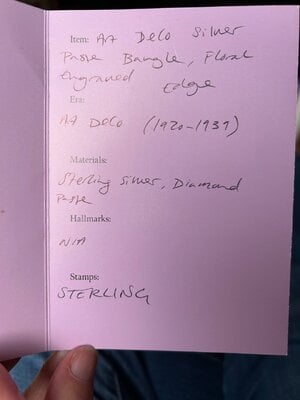 Item: Art Deco Silver
Paste Bangle, Floral
engraved Edge
Era:
Art Deco (1920-1939)
Materials:
Sterling Silver, Diamond
Paste
Hallmarks:
N/A
Stamps:
STERLING